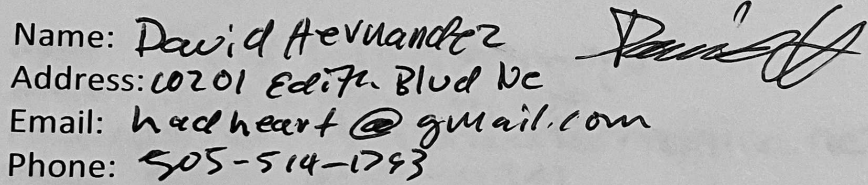 Name: David Hernandez
Address: 10201 Edith Blvd Ne
Email: hadheart@gmail.com
Phone: 505-514-1793